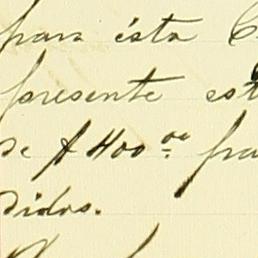 para ésta C
presente est
de $400.oo fra
didos.